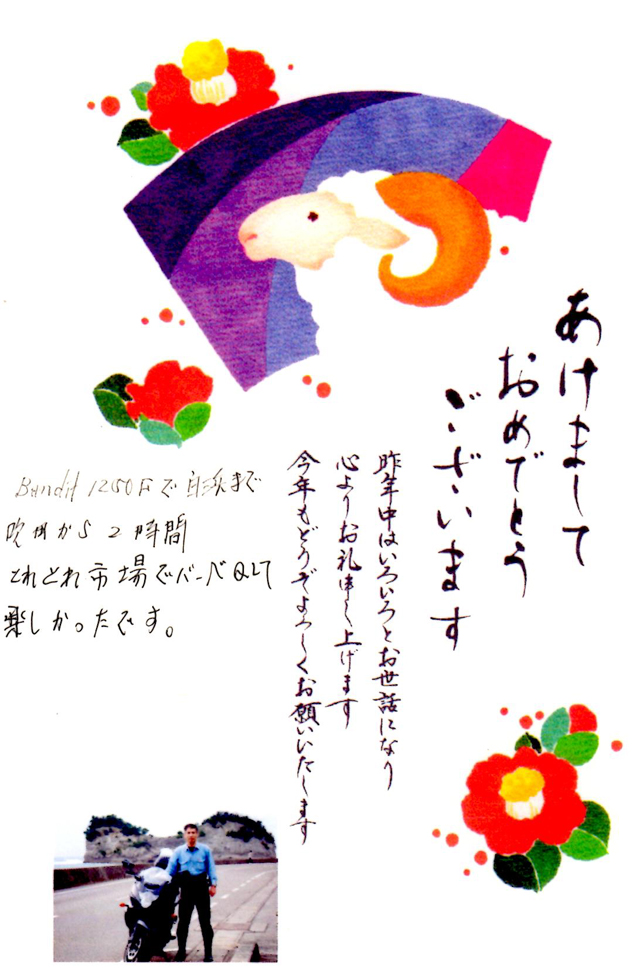 あけまして
おめでとう
ございます
昨年中はいろいろとお世話になり
心よりお礼申し上げます
今年もどうぞよろしくお願いいたします
Bandit 1250Fで白浜まで
吹田から2時間
とれとれ市場でバーベQして
楽しかったです。